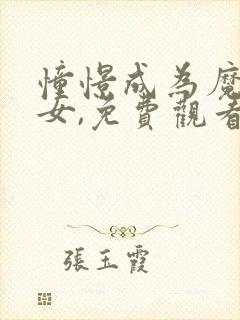 憧憬成為魔
女,免費觀看
張玉霞